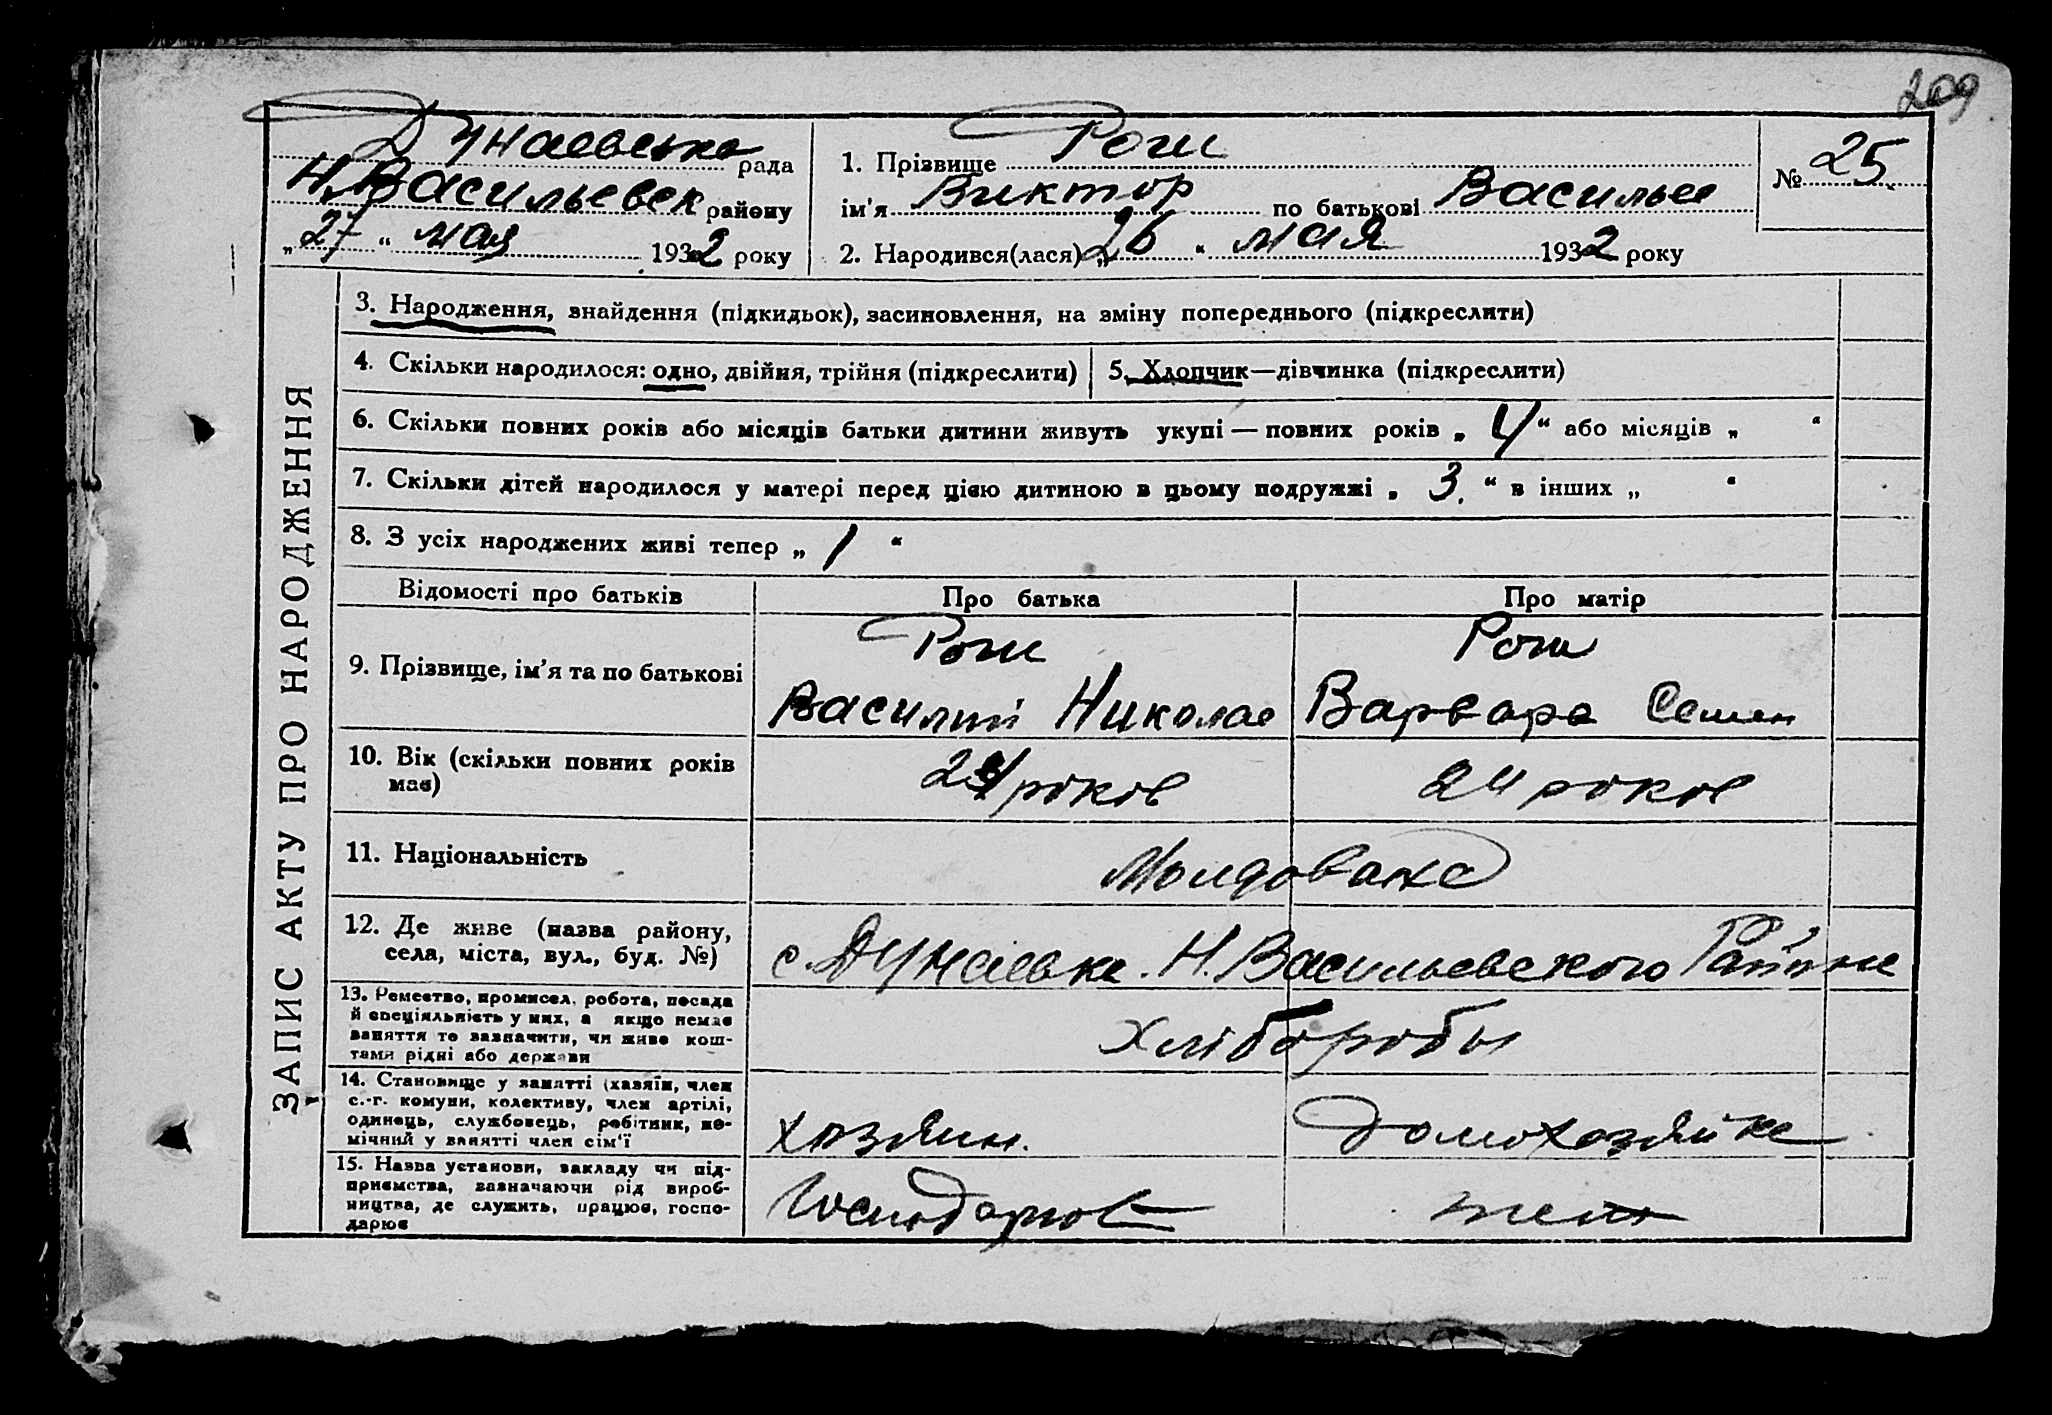 209
Дунаевська рада
Н.Васильевск району
„27“ мая 1932 року
1. Прізвище Рош
ім'я Виктор по батькові Василье
2. Народився(лася) „26“ мая 1932 року
№ 25.
ЗАПИС АКТУ ПРО НАРОДЖЕННЯ
3. Народження, знайдення (підкидьок), засиновлення, на зміну попереднього (підкреслити)
4. Скільки народилося: одно, двійня, трійня (підкреслити)
5. Хлопчик—дівчинка (підкреслити)
6. Скільки повних років або місяців батьки дитини живуть укупі — повних років „4“ або місяців „ “
7. Скільки дітей народилося у матері перед цією дитиною в цьому подружжі „3.“ в інших „ “
8. З усіх народжених живі тепер „1“
Відомості про батьків
Про батька
Про матір
9. Прізвище, ім'я та по батькові
Рош
Василий Николае
Рош
Варвара Семен
10. Вік (скільки повних років
має)
24 роков
24 роков
11. Національність
Молдоване
12. Де живе (назва району,
села, міста, вул., буд. №)
с. Дунаевка. Н. Васильевского Району
13. Ремество, промисел, робота, посада
й спеціяльність у них, а якщо немає
заняття то зазначити, чи живе кош-
тами рідні або держави
хліборобы
14. Становище у занятті (хазяїн, член
с.-г. комуни, колективу, член артілі,
одинець, службовець, робітник, по-
мічний у занятті член сім'ї
хозяин.
домохозяйка
15. Назва установи, закладу чи під-
приємства, зазначаючи рід вироб-
ництва, де служить, працює, госпо-
дарює